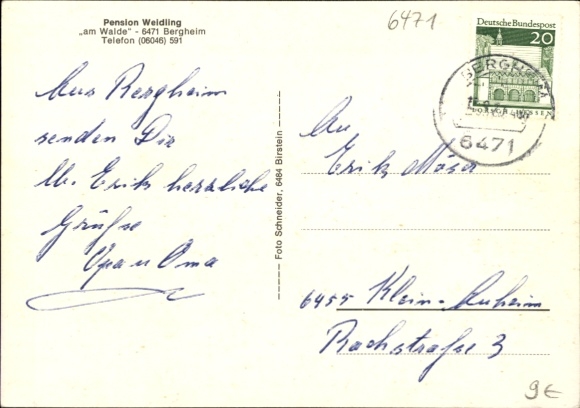 Pension Weidling
„am Walde" - 6471 Bergheim
Telefon (06046) 591
Aus Bergheim
senden Dir
lb. Erik herzliche
Grüße
Opa u Oma
Foto Schneider, 6484 Birstein
6471
Deutsche Bundespost
20
BERGHEIM
6471
An
Erik Möser
6455 Klein-Auheim
Bachstraße 3
9€